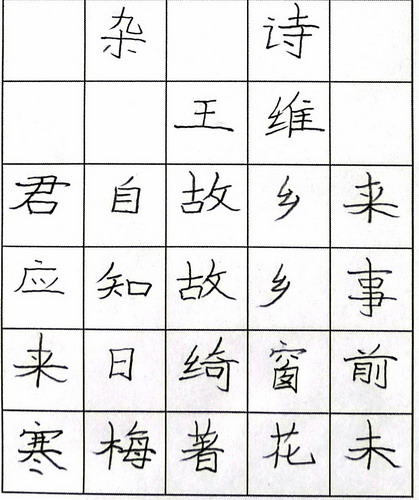 杂诗
王维
君自故乡来
应知故乡事
来日绮窗前
寒梅著花未